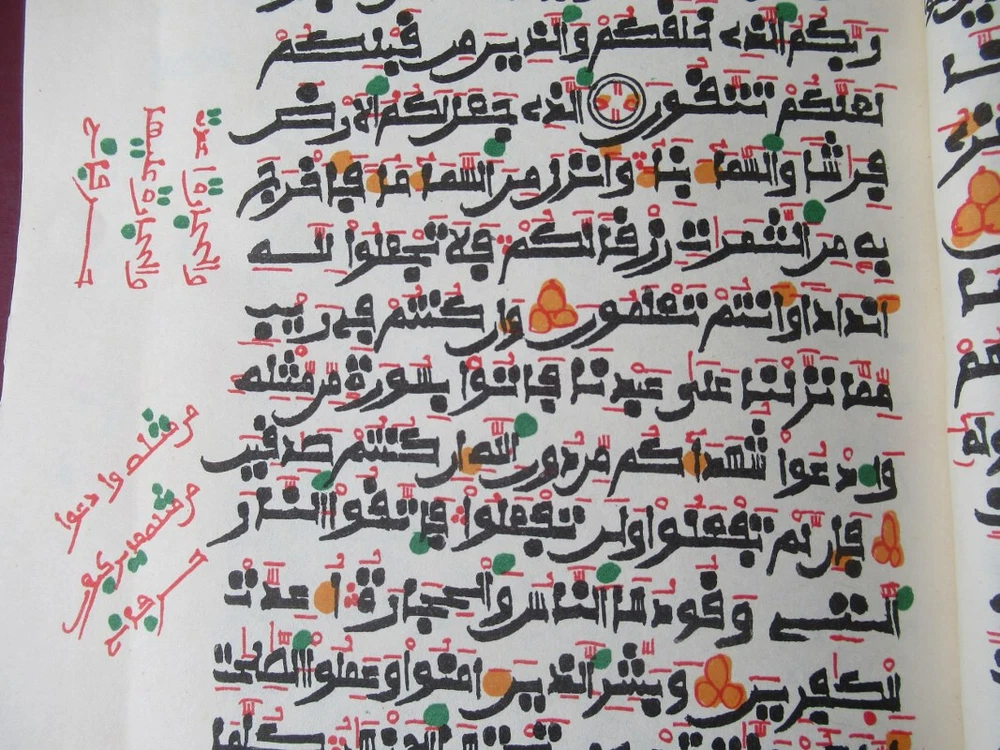 ربكم الذى خلقكم والذين من قبلكم
لعلكم تتقون الذى جعل لكم الارض
فرشا والسماء بناء وانزل من السماء ماء فاخرج
به من الثمرت رزقا لكم فلا تجعلوا لله
اندادا وانتم تعلمون وان كنتم فى ريب
مما نزلنا على عبدنا فاتوا بسورة من مثله
وادعوا شهداءكم من دون الله ان كنتم صدقين
فان لم تفعلوا ولن تفعلوا فاتقوا النار
التى وقودها الناس والحجارة اعدت
للكفرين وبشر الذين ءامنوا وعملوا الصلحت
من مثله وادعوا